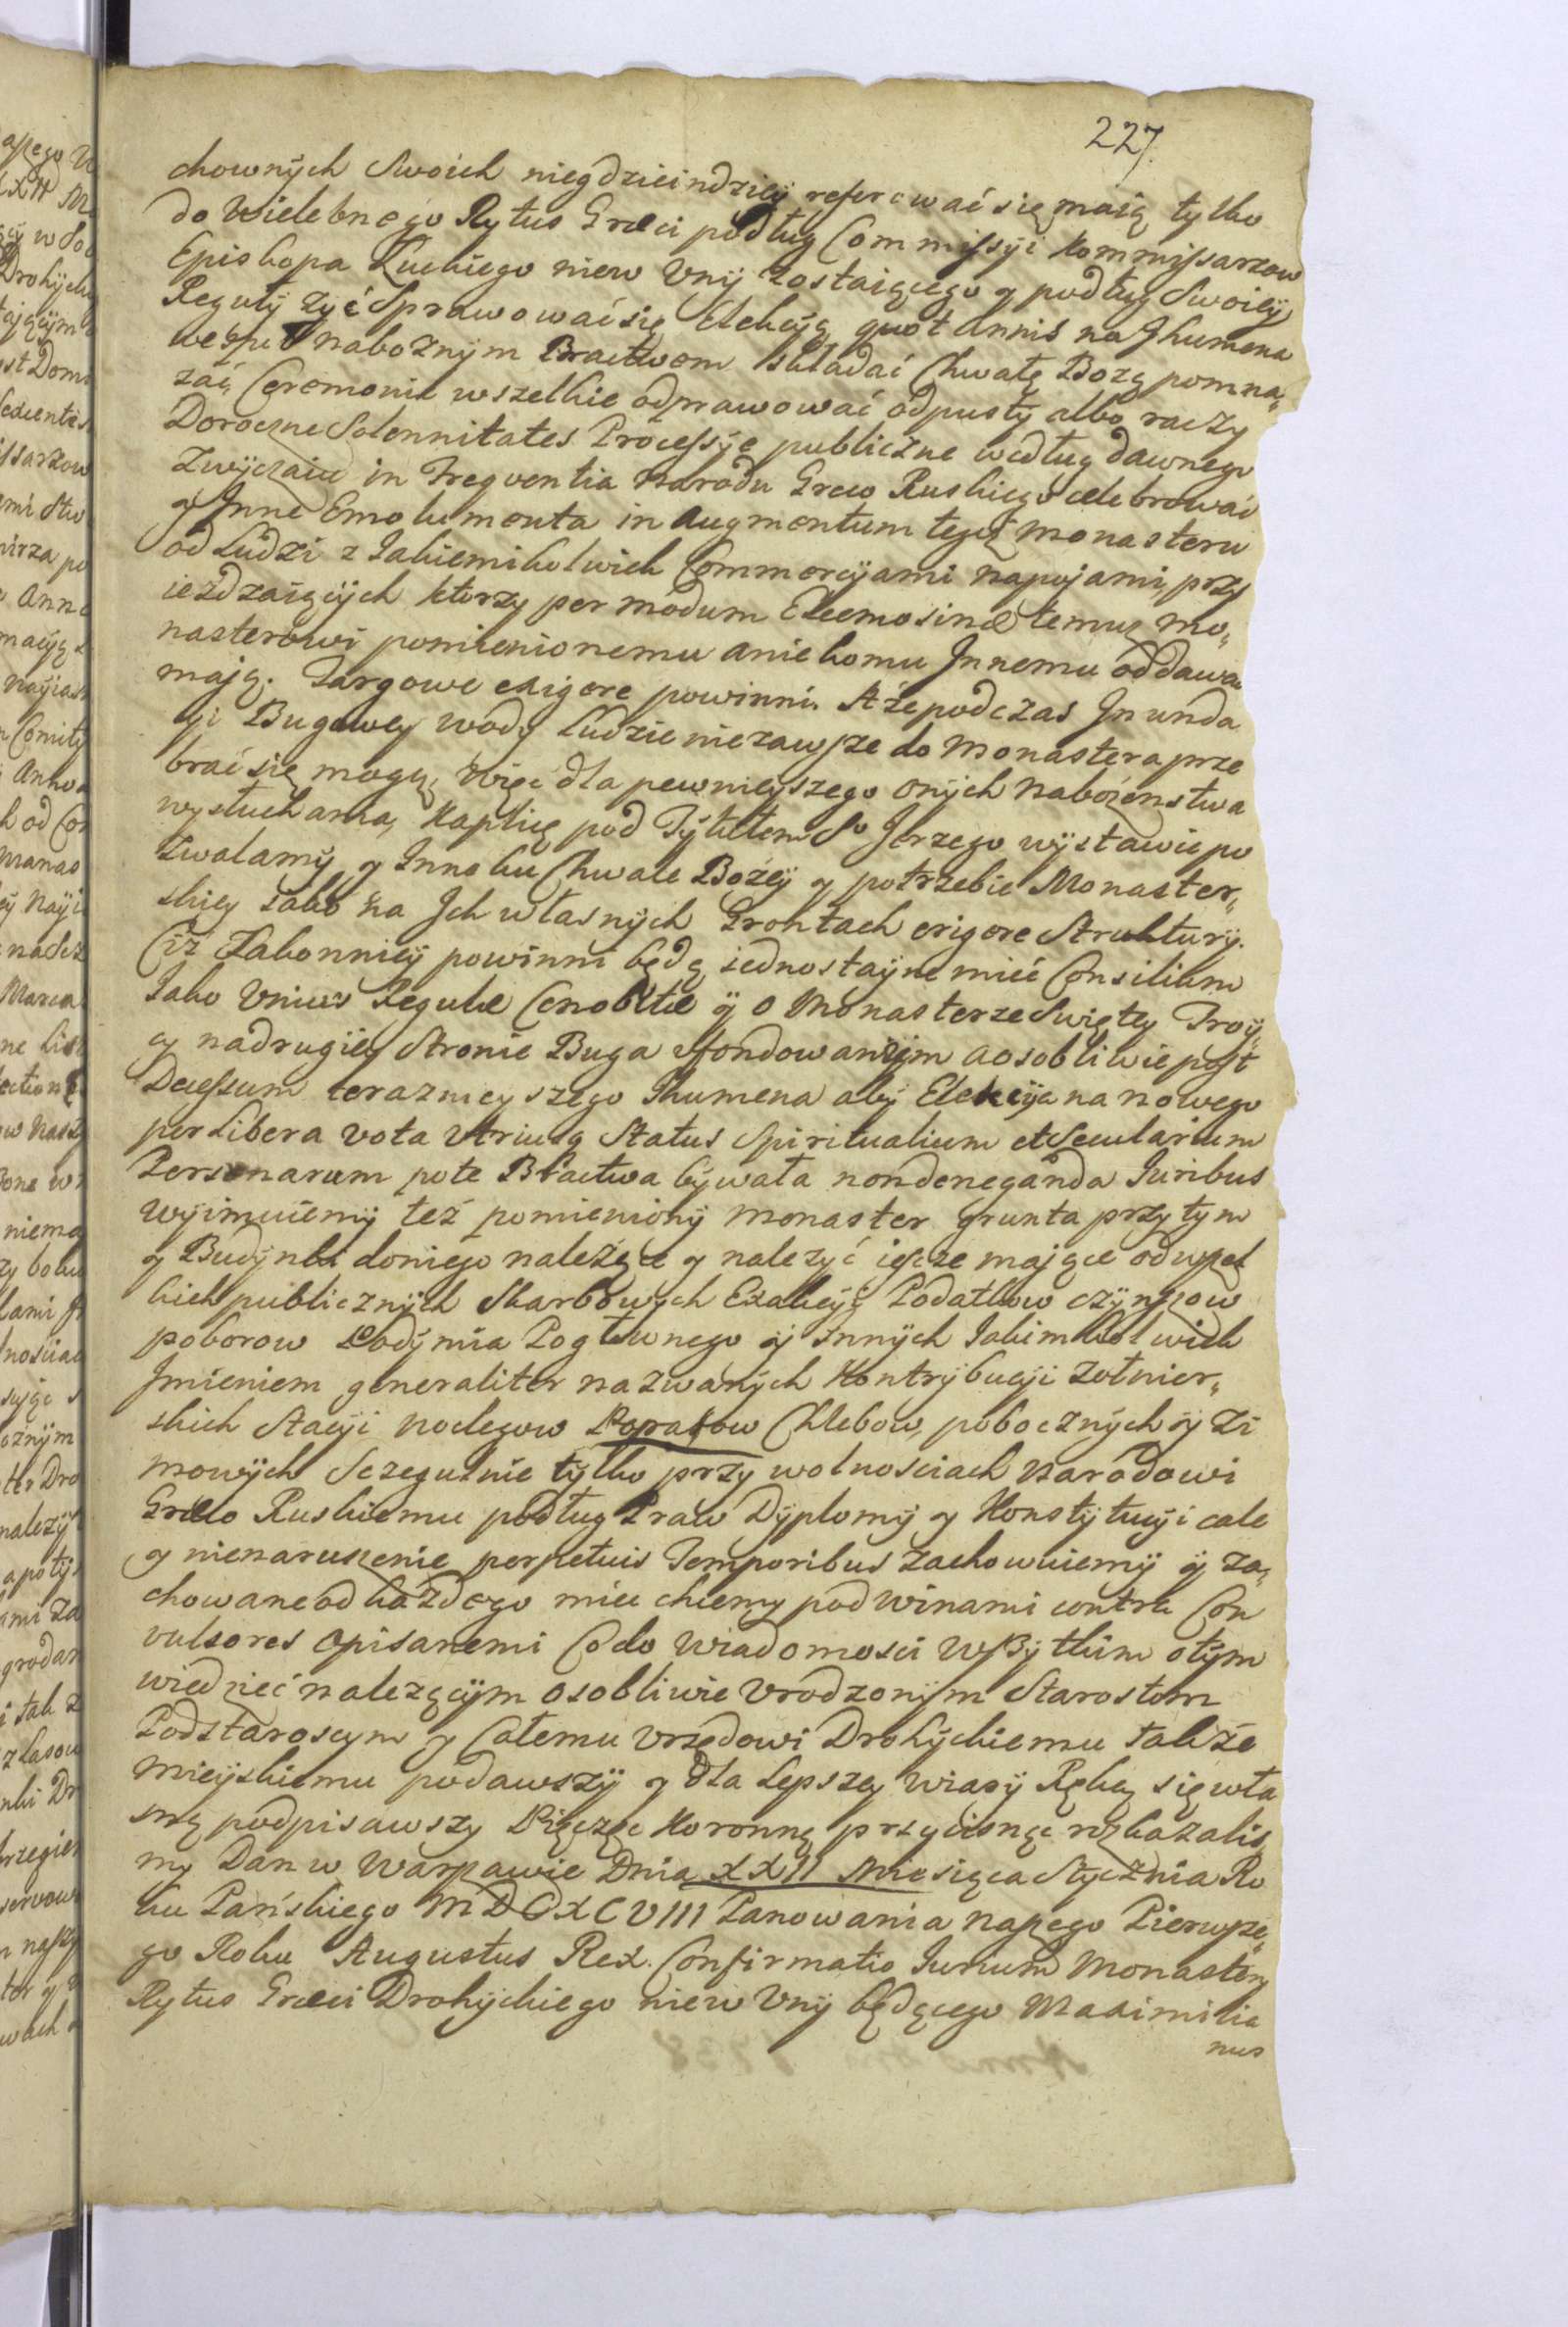 227.
chownych Swoich niegdzieindziey referować się maią tylko
do Wielebnego Rytus Græci podług Commissyi Kommissarzow
Episkopa Łuckiego niew Vnij zostaiącego y podług Swoiey
Reguły żyć Sprawować się Elekcyą quot Annis na Jhumena
wespuł nabożnym Bractwem składać Chwałę Bożą pomna„
żać Ceremonie wszelkie odprawować odpusty albo raczy
Doroczne Solennitates Processye publiczne według dawnego
Zwyczaiu in Freqventia Narodu Greco Ruskiego celebrować
y Jnne Emolumenta in Augmentum tegoż Monasteru
od Ludzi z Jakiemikolwiek Commercyjami napojami, przy
ieżdzaiących ktorzy per modum Eleemosinæ temuż Mo„
nasterowi pomienionemu anie komu Jnnemu oddawa
mają. Targowe exigere powinni. A że podczas Jnunda
cyi Bugowey wody Ludzie niezawsze do Monastera prze
brać się mogą, Więc dla pewnieyszego onych Nabożenstwa
wysłuchania, Kaplicę pod Tytułem So Jerzego wystawić po
zwalamy y Inno ku Chwale Bożey y potrzebie Monaster„
skiey iako na Jch własnych Grontach erigere Struktury.
Ciż Zakonnicy powinni będą iednostayne mieć Consilium
Jako Vnius Regulæ Cenobitæ y o Monasterze Swiętey Troy„
cy nadrugiey Stronie Buga Ufondowanym a osobliwie post
Decessum teraznieyszego Jhumena aby Elekcyja na nowego
per Libera vota Vtriusq Status Spiritualium et Secularium
Personarum pote Bractwa bywała nondeneganda Juribus
Wyimuiemy też pomieniony Monaster grunta przytym
y Budynki doniego należące y należyć iescze mające od wszel
kich publicznych Skarbowych Exakcyi Podatkow czynszow
poborow Podymia Pogłownego y Jnnych Jakimkolwiek
Jmieniem generaliter nazwanych Kontrybucyi Zołnier„
skich Stacyi Noclegow Popasow Chlebow, pobocznych y Zi
mowych Sczegulnie tylko przy wolnosciach Narodowi
Græco Ruskiemu podług Praw Dyplomy y Konstytucyi cale
y nienaruszenie perpetuis Temporibus zachowuiemy y za„
chowane od każdego miec chcemy pod winami contra Con
vulsores opisanemi Co do Wiadomosci wszytkim otym
wiedzieć należącym osobliwie Vrodzonym Starostom
Podstaroscym y Całemu Vrzędowi Drohyckiemu także
Mieyskiemu podawszy y dla Lepszey Wiary Ręką się wła
sną podpisawszy Pieczęc Koronną przycisnąc rozkazalis„
my Dan w Warszawie Dnia XXII Miesiąca Stycznia Ro
ku Pańskiego MDCXCVIII Panowania naszego Pierwsze„
go Roku Augustus Rex. Confirmatio Jurium Monastery
Rytus Græci Drohyckiego niew Vnij będącego Maximilia
nus